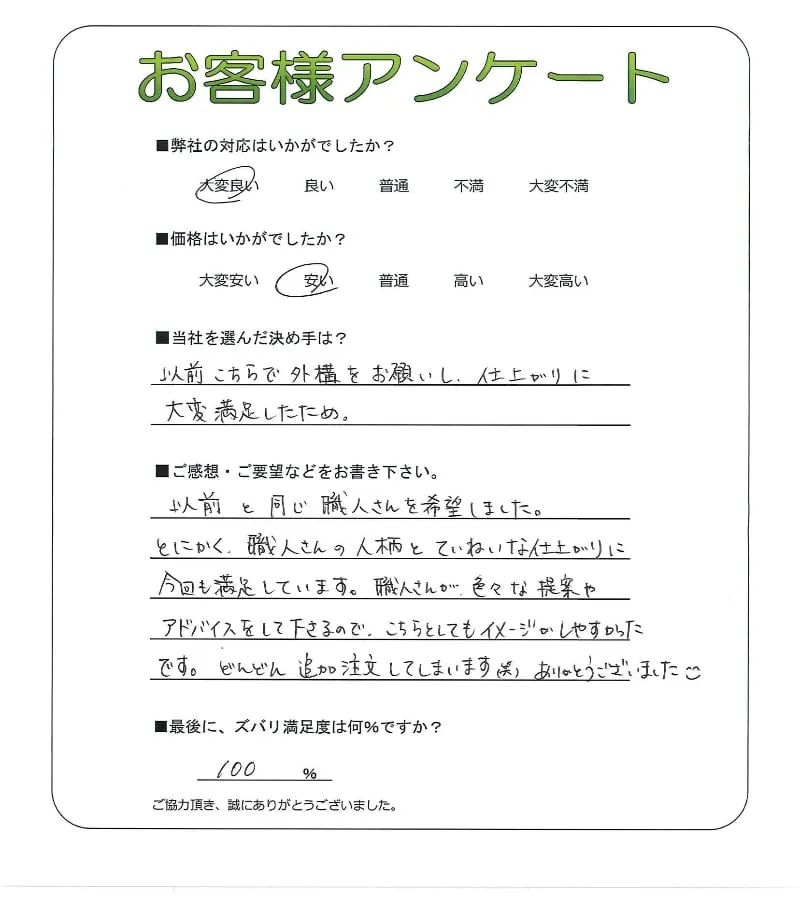 お客様アンケート
■弊社の対応はいかがでしたか？
大変良い 良い 普通 不満 大変不満
■価格はいかがでしたか？
大変安い 安い 普通 高い 大変高い
■当社を選んだ決め手は？
以前こちらで外構をお願いし、仕上がりに
大変満足したため。
■ご感想・ご要望などをお書き下さい。
以前と同じ職人さんを希望しました。
とにかく、職人さんの人柄とていねいな仕上がりに
今回も満足しています。職人さんが、色々な提案や
アドバイスをして下さるので、こちらとしてもイメージがしやすかった
です。どんどん追加注文してしまいます(笑) ありがとうございました
■最後に、ズバリ満足度は何％ですか？
100 ％
ご協力頂き、誠にありがとうございました。